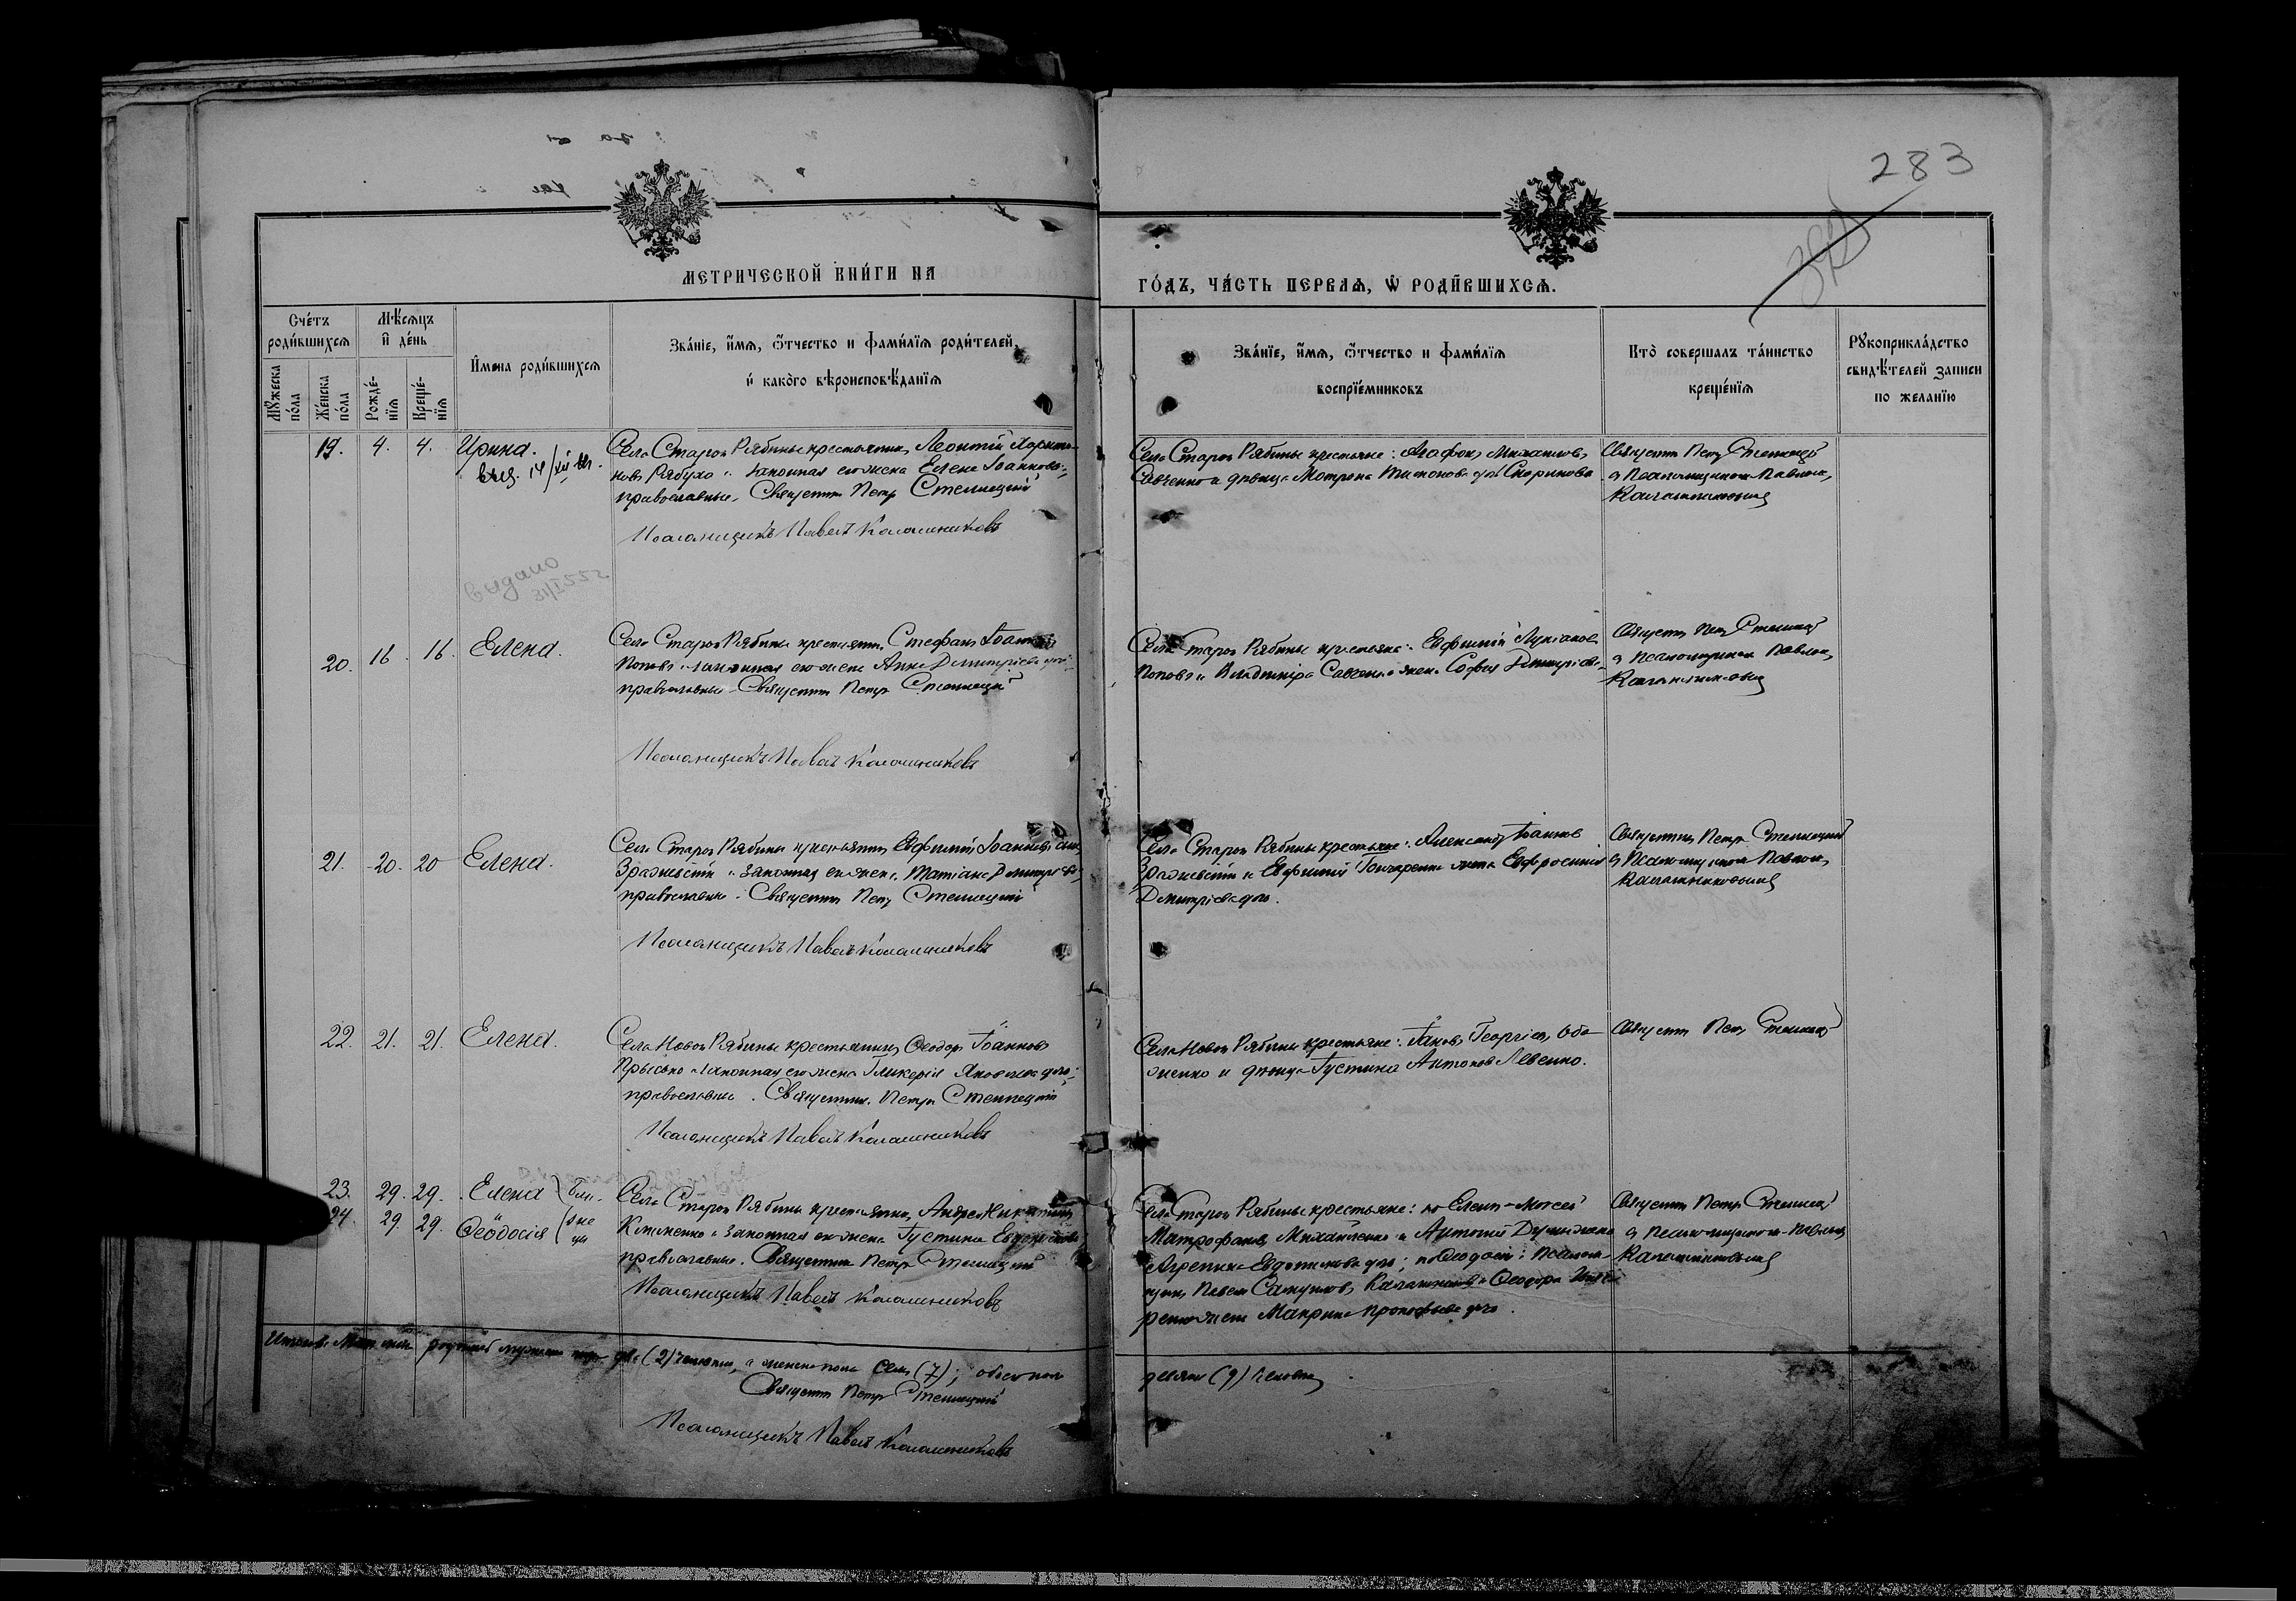 283
МЕТРИЧЕСКОЙ КНИГИ НА
ГОДЪ, ЧАСТЬ ПЕРВАЯ, Ѿ РОДИВШИХСЯ.
Счетъ родившихся
Мѣсяцъ и день
Мꙋжеска пола
Женска пола
Рожде-нія
Креще-нія
Имена родившихся
Званіе, имя, ѿтчество и фамилія родителей,
и какого вѣроисповѣданія
Званіе, имя, ѿтчество и фамилія
воспріемниковъ
Кто совершалъ таинство
крещенія
Рꙋкоприкладство
свидѣтелей записи
по желанію
19. 4. 4. Ирина.
Села Старой Рябины крестьянинъ Леонтій Харито-
новъ Рябуха и законная его жена Елена Іоаннова,
православные. Священникъ Петръ Стеллецкій
Псаломщикъ Павелъ Калашниковъ
Села Старой Рябины крестьяне: Агафонъ Михаиловъ
Савченко и дѣвица Мотрона
Священникъ Петръ Стеллецкій
съ Псаломщикомъ Павломъ
Калашниковымъ
Выдано
20. 16. 16. Елена.
Села Старой Рябины крестьянинъ Стефанъ
Поповъ и законная его жена Анна Димитріева
православные. Священникъ Петръ Стеллецкій
Псаломщикъ Павелъ Калашниковъ
Села Старой Рябины крестьяне: Евфимій Лукіановъ
Поповъ и Владиміра Савченко жена Софія Димитріева
Священникъ Петръ Стеллецкій
съ Псаломщикомъ Павломъ
Калашниковымъ
21. 20. 20 Елена.
Села Старой Рябины крестьянинъ Евфимій Іоанновъ
и законная его жена Татіана Димитріева
православные. Священникъ Петръ Стеллецкій
Псаломщикъ Павелъ Калашниковъ
Села Старой Рябины крестьяне: Александръ Іоанновъ
и Евфимій Гончаренко жена Евфросинія
Димитріева
Священникъ Петръ Стеллецкій
съ Псаломщикомъ Павломъ
Калашниковымъ
22. 21. 21. Елена.
Села Новой Рябины крестьянинъ Ѳеодоръ Іоанновъ
Прысько и законная его жена Гликерія Яковлева
православные. Священникъ Петръ Стеллецкій
Псаломщикъ Павелъ Калашниковъ
Села Новой Рябины крестьяне: Іаковъ Георгіевъ
и дѣвица Густина Антонова Левенко.
Священникъ Петръ Стеллецкій
23. 29. 29. Елена
24. 29. 29. Ѳеодосія
близ-
не
цы
Села Старой Рябины крестьянинъ Андрей
Клименко и законная его жена Густина
православные. Священникъ Петръ Стеллецкій
Псаломщикъ Павелъ Калашниковъ
Села Старой Рябины крестьяне: по Еленѣ - Моисей
Митрофановъ Михайленко и Антонія
Агрепина; по Ѳеодосіи: Псалом-
щикъ Павелъ Калашниковъ и Ѳеодора
жена Макрина Прокофьева
Священникъ Петръ Стеллецкій
съ псаломщикомъ Павломъ
Калашниковымъ
два (2) человѣка, а женска пола семь (7); обоего пола
девять (9) человѣкъ
Священникъ Петръ Стеллецкій
Псаломщикъ Павелъ Калашниковъ